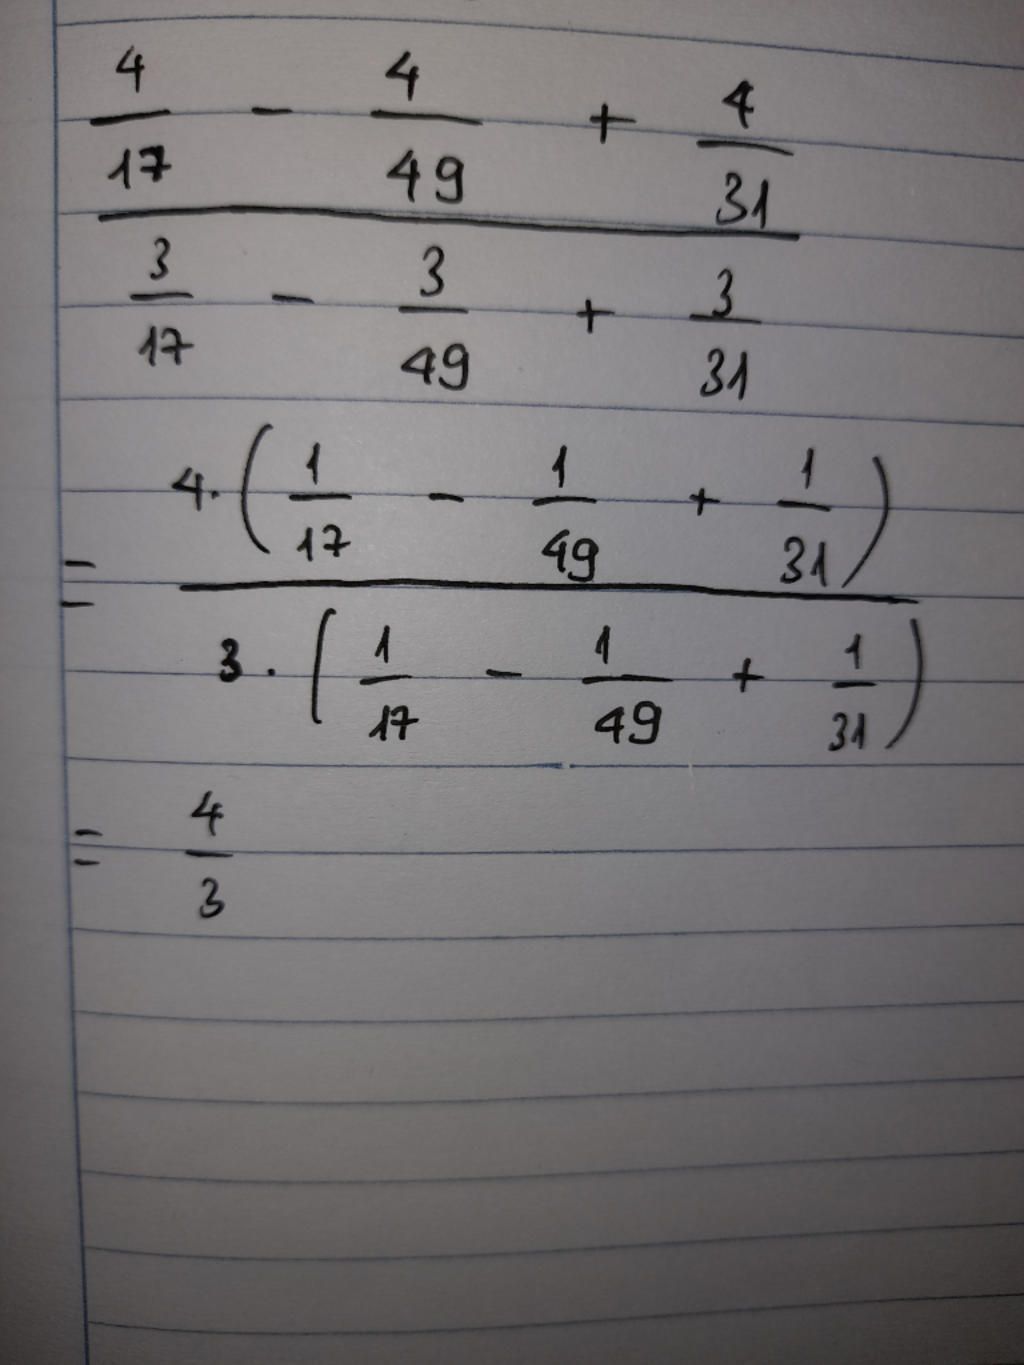 4/17 - 4/49 + 4/31
3/17 - 3/49 + 3/31
= 4. (1/17 - 1/49 + 1/31)
3. (1/17 - 1/49 + 1/31)
= 4/3